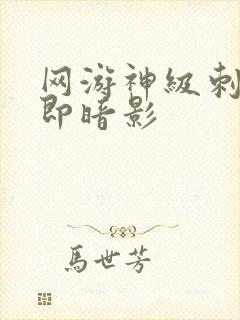 网游神级刺
即暗影
馬世芳